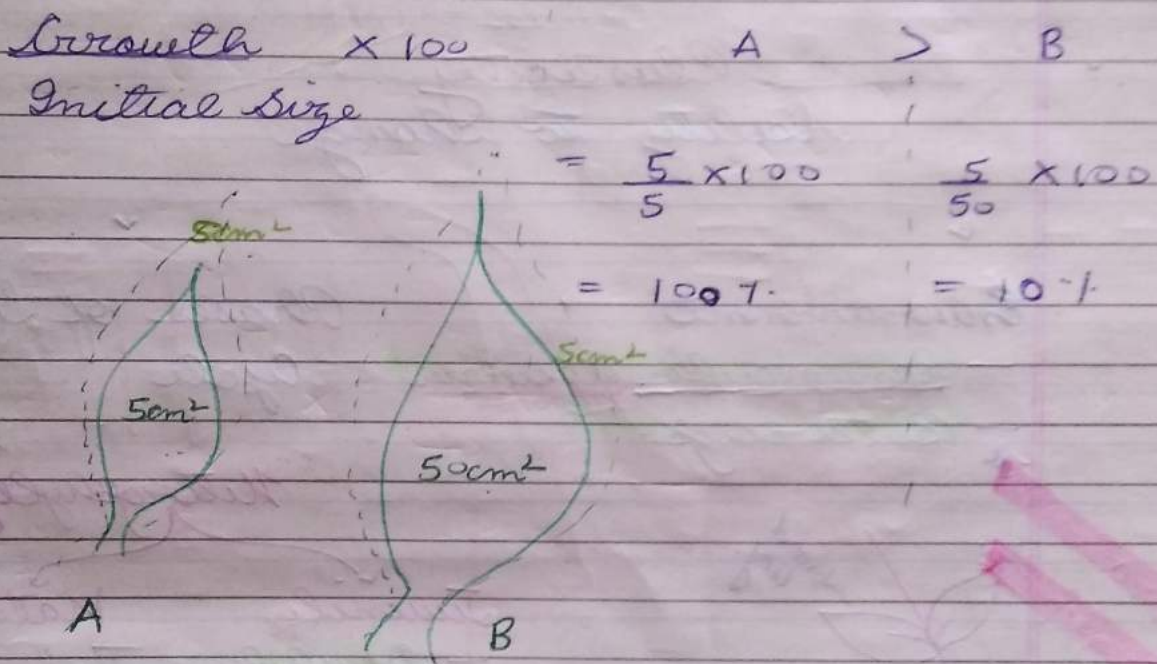 Growth × 100 A > B
Initial Size
= 5/5 × 100 5/50 × 100
= 100% = 10%
5cm²
5cm²
5cm²
50cm²
A B